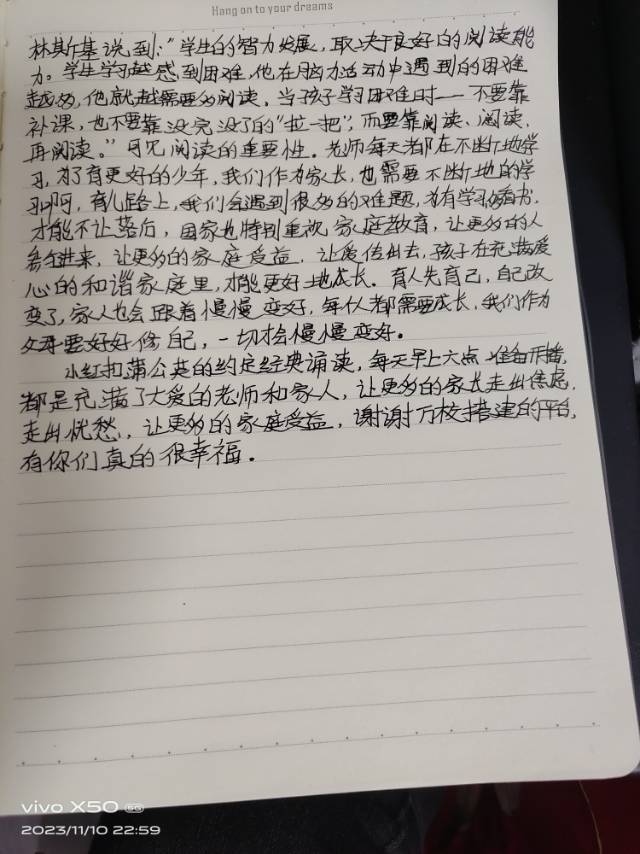 Hang on to your dreams
林斯基说到："学生的智力发展，取决于良好的阅读能
力。学生学习越感到困难，他在脑力活动中遇到的困难
越多，他就越需要多阅读。当孩子学习困难时——不要靠
补课，也不要靠没完没了的"拉一把"，而要靠阅读、阅读、
再阅读。"可见阅读的重要性。老师每天都在不断地学
习，为了育更好的少年，我们作为家长，也需要不断地的学
习啊，育儿路上，我们会遇到很多的难题，只有学习看书，
才能不让落后，国家也特别重视家庭教育，让更多的人
参与进来，让更多的家庭受益，让爱传出去，孩子在充满爱
心的和谐家庭里，才能更好地成长。育人先育己，自己改
变了，家人也会跟着慢慢变好，每个人都需要成长，我们作为
父母要好好修自己，一切才会慢慢变好。
小红扣蒲公英的约定经典诵读，每天早上六点准备开播，
都是充满了大爱的老师和家人，让更多的家长走出焦虑，
走出忧愁，让更多的家庭受益，谢谢万校搭建的平台，
有你们真的很幸福。
vivo X50 5G
2023/11/10 22:59